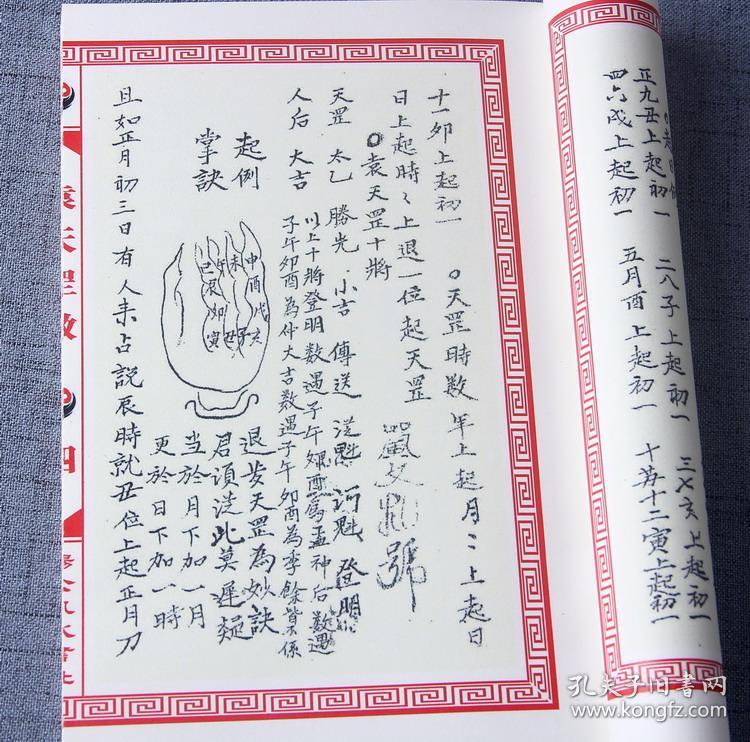 正九丑上起初一 二八子上起初一 三七亥上起初一
四六戌上起初一 五月酉上起初一 十 十二寅上起初一
十一卯上起初一 天罡時数 年上起月〻上起日
日上起時〻上退一位起天罡
袁天罡十將
天罡 太乙 勝光 小吉 傳送 河魁 登明
人后 大吉 以上十將登明数遇子午 為孟神后数遇
子午卯酉為仲大吉数遇子午卯酉為季餘皆不係
起例
掌訣
申酉戌亥
未
午
巳辰卯寅
丑
子
退步天罡為妙訣
君須 此莫遲疑
当於月下加一月
更於日下加一時
且如正月初三日有人来占説辰時就丑位上起正月
袁天罡数
四
孔夫子旧書网
www.kongfz.com